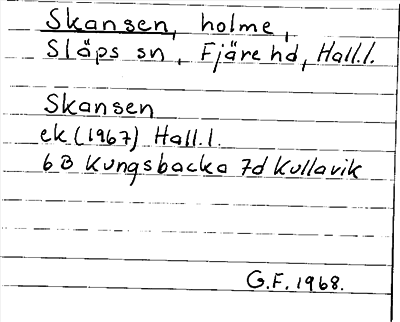 Skansen, holme,
Släps sn, Fjäre hd, Hall.l.
Skansen
ek (1967) Hall.l.
6B Kungsbacka 7d Kullavik
G.F. 1968.